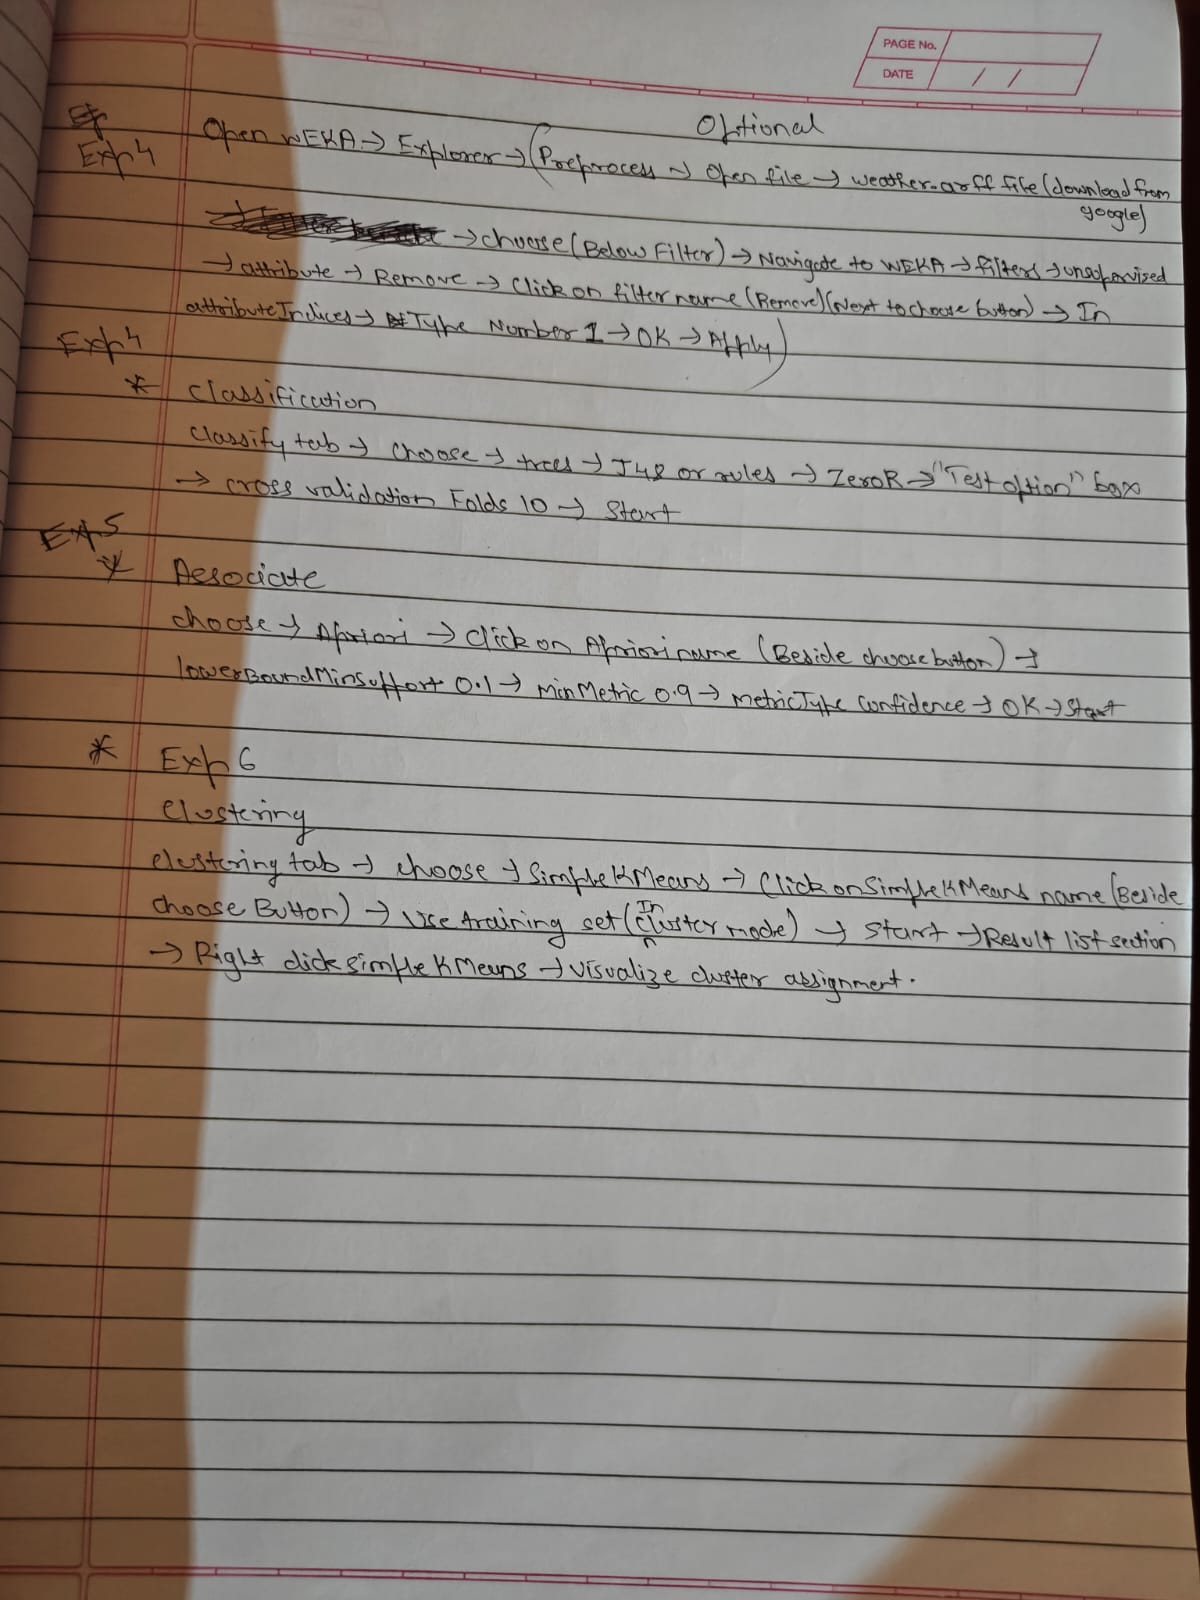 PAGE No.
DATE / /
Optional
Exp 4 Open WEKA → Explorer → (Preprocess → Open file → weather.arff file (download from google)
→ choose (Below Filter) → Navigate to WEKA → filters → unsupervised
→ attribute → Remove → Click on filter name (Remove) (Next to choose button) → In
attributeIndices → Type Number 1 → OK → Apply)
Exp 4
* Classification
Classify tab → choose → trees → J48 or rules → ZeroR → "Test option" box
→ cross validation Folds 10 → Start
Exp 5
* Associate
choose → Apriori → Click on Apriori name (Beside choose button) →
lowerBoundMinSupport 0.1 → minMetric 0.9 → metricType confidence → OK → Start
* Exp 6
Clustering
clustering tab → choose → SimpleKMeans → Click on SimpleKMeans name (Beside
choose Button) → Use training set (In cluster mode) → Start → Result list section
→ Right click simpleKMeans → visualize cluster assignment.